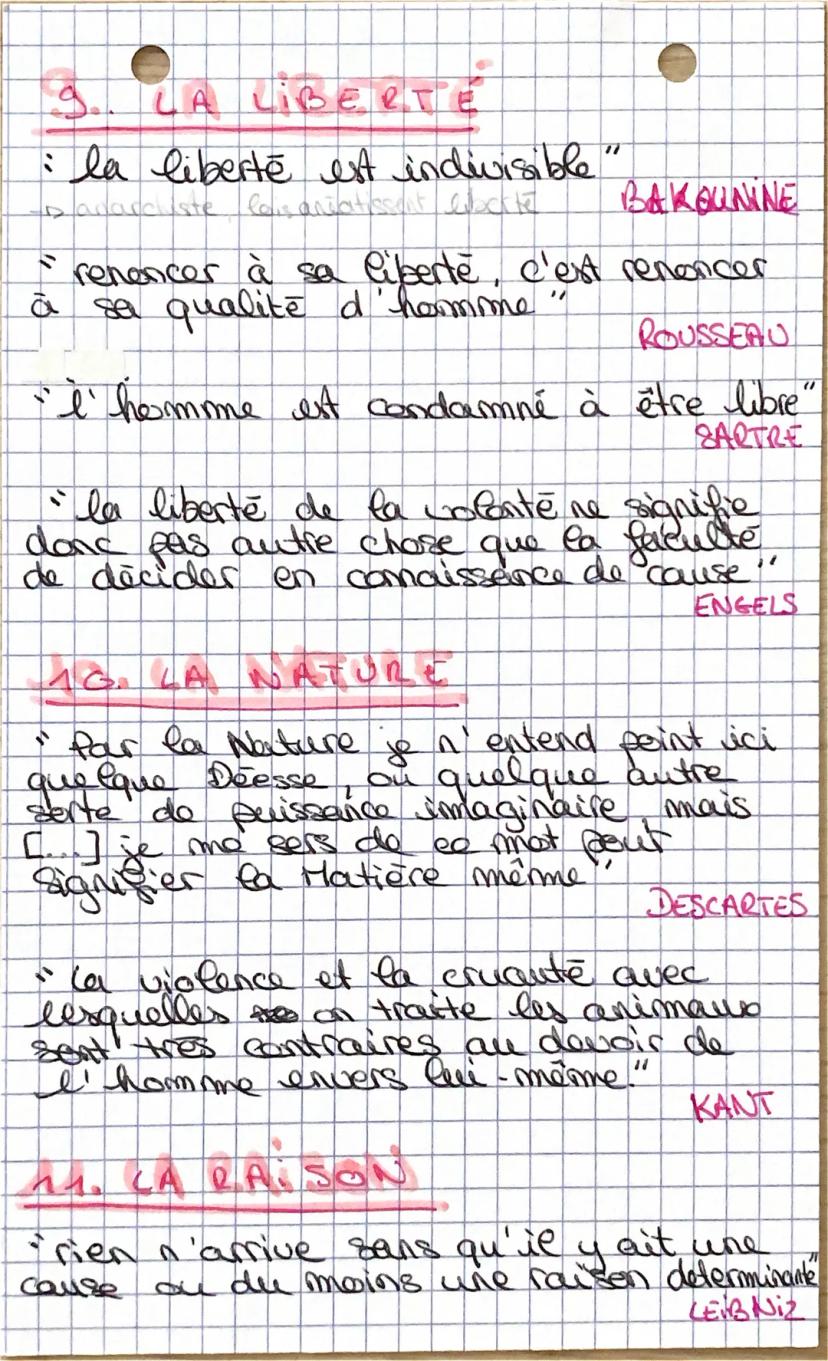 9. LA LIBERTÉ
"la liberté est indivisible"
BAKOUNINE
→ anarchiste, lois anéatissent liberté
"renoncer à sa liberté, c'est renoncer
à sa qualité d'homme"
ROUSSEAU
"l'homme est condamné à être libre"
SARTRE
"la liberté de la volonté ne signifie
donc pas autre chose que la faculté
de décider en connaissance de cause"
ENGELS
10. LA NATURE
"Par la Nature je n'entend point ici
quelque Déesse, ou quelque autre
sorte de puissance imaginaire, mais
[...] je me sers de ce mot pour
signifier la Matière même"
DESCARTES
"La violence et la cruauté avec
lesquelles on traite les animaux
sont très contraires au devoir de
l'homme envers lui-même."
KANT
11. LA RAISON
"rien n'arrive sans qu'il y ait une
cause ou du moins une raison determinante"
LEIBNIZ